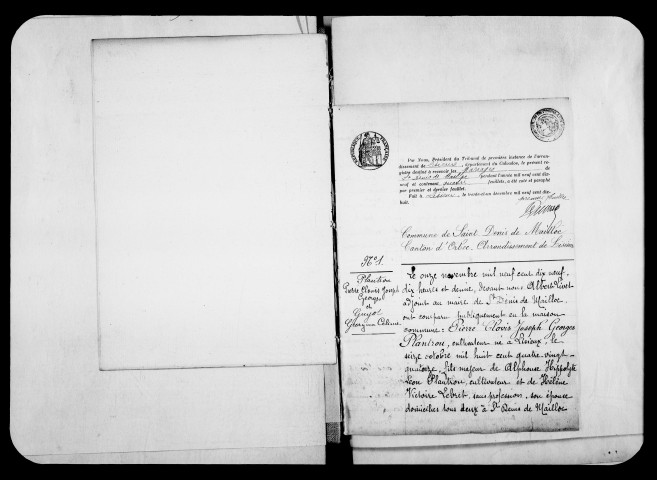 Par Nous, Président du Tribunal de première instance de l'arron-
dissement de Lisieux, département du Calvados, le présent re-
gistre destiné à recevoir les Mariages de
St Denis de Mailloc pendant l'année mil neuf cent dix-
neuf et contenant feuillets, a été coté et paraphé
par premier et dernier feuillet.
Fait à Lisieux, le trente-et-un décembre mil neuf cent dix-
huit.
Commune de Saint Denis de Mailloc
Canton d'Orbec, Arrondissement de Lisieux
N° 1.
Plantrou
Pierre Clovis Joseph
Georges
et
Guyot
Georgina Céline
Le onze novembre mil neuf cent dix neuf,
dix heures et demie, devant nous Albert Vivet
adjoint au maire de St Denis de Mailloc
ont comparu publiquement en la maison
commune : Pierre Clovis Joseph Georges
Plantrou, cultivateur né à Lisieux, le
seize octobre mil huit cent quatre vingt-
quatorze, fils majeur de Alphonse Hippolyte
Léon Plantrou, cultivateur et de Hélène
Victoire Lebret, sans profession, son épouse
domiciliés tous deux à St Denis de Mailloc